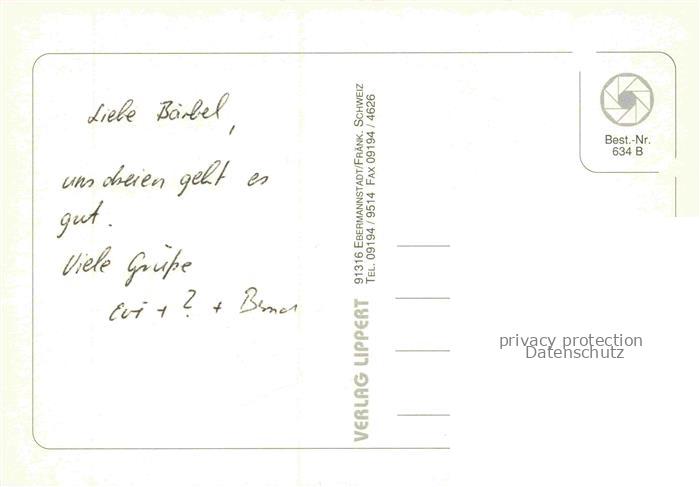 Liebe Bärbel,
uns dreien geht es
gut.
Viele Grüße
Evi + ? + Bernd
VERLAG LIPPERT
91316 EBERMANNSTADT/FRÄNK. SCHWEIZ
TEL. 09194 / 9514 FAX 09194 / 4626
Best.-Nr.
634 B
privacy protection
Datenschutz